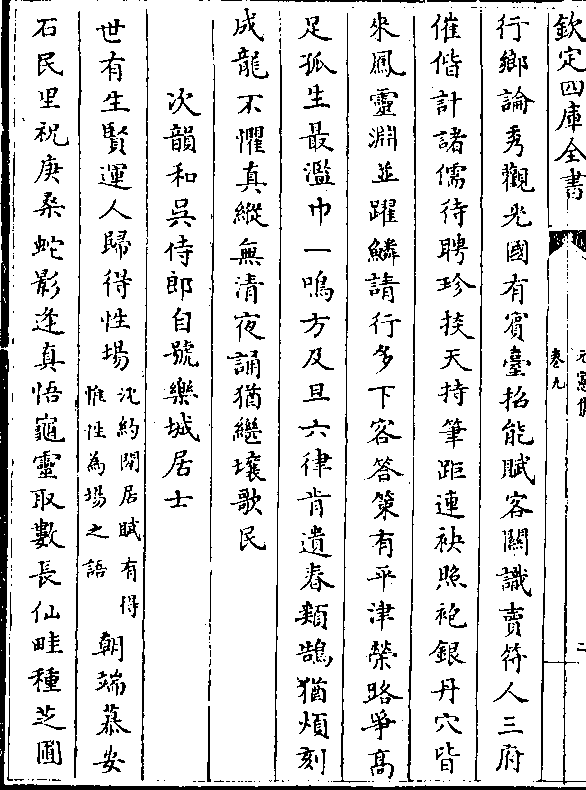 欽定四庫全書
卷九
二
行鄉論秀觀光國有賓臺招能賦客關識賣符人三府
催偕計諸儒待聘珍掞天持筆距連袂照袍銀丹穴皆
來鳳靈淵並躍鱗請行多下客答策有平津榮路爭高
足孤生最濫巾一鳴方及旦六律肯遺春類鵠猶煩刻
成龍不懼真縱無清夜誦猶繼壤歌民
次韻和吳侍郎自號樂城居士
世有生賢運人歸得性場沈約閒居賦有得惟性為場之語朝端慕安
石民里祝庚桑蛇影逢真悟龜靈取數長仙畦種芝圃